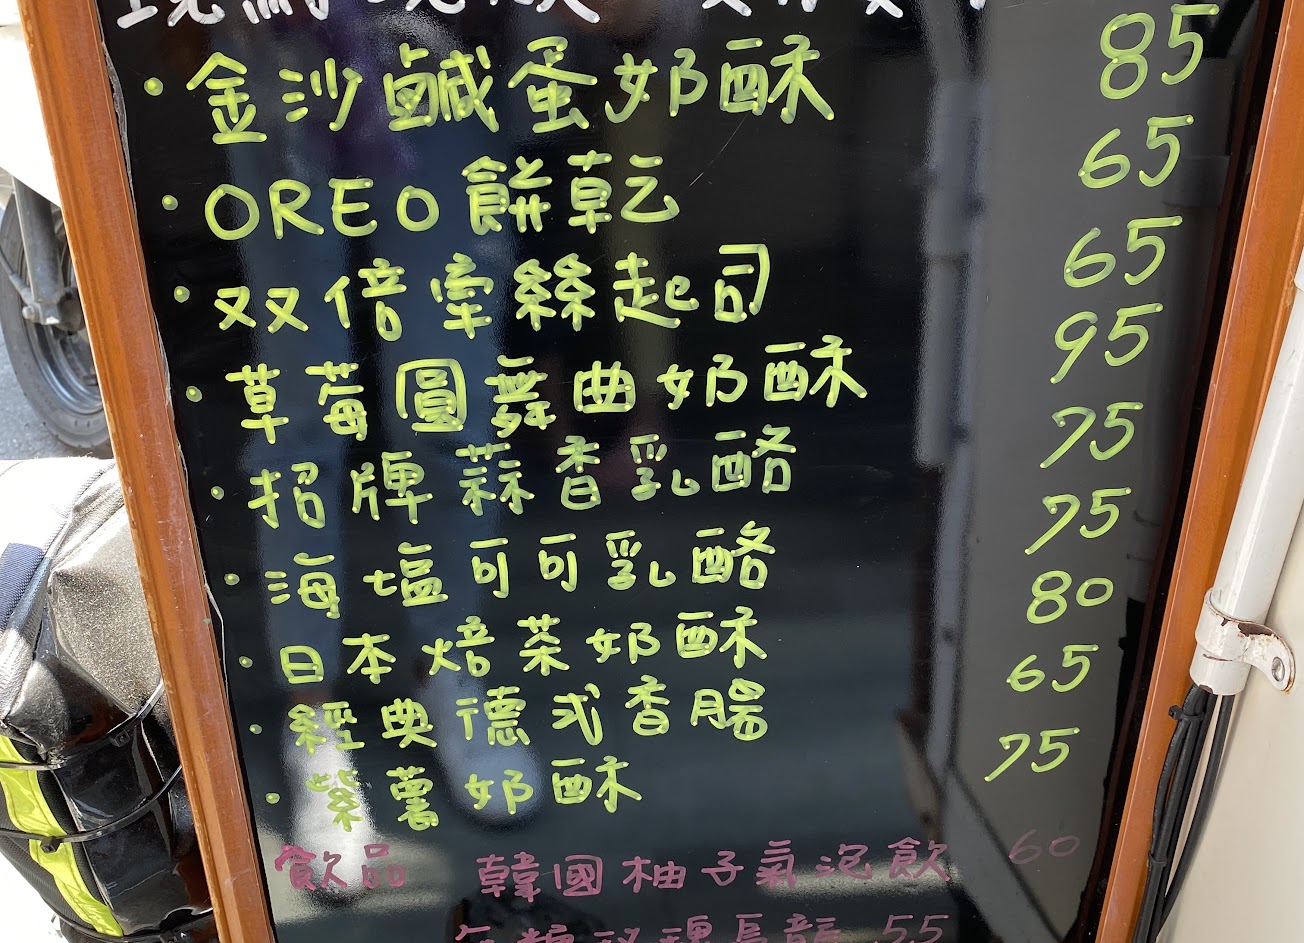 ・金沙鹹蛋奶酥 85
・OREO餅乾 65
・双倍牽絲起司 65
・草莓圓舞曲奶酥 95
・招牌蒜香乳酪 75
・海塩可可乳酪 75
・日本焙茶奶酥 80
・經典德式香腸 65
・紫薯奶酥 75
飲品 韓國柚子氣泡飲 60
烏龍 55